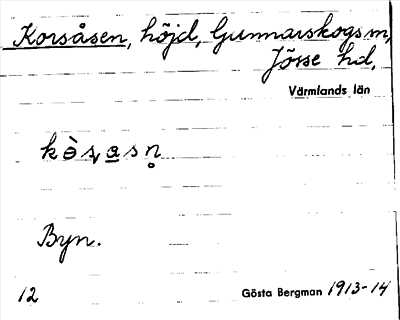 Korsåsen, höjd, Gunnarskogs sn,
Jösse hd,
Värmlands län
kòʂa̲sn̥
Byn.
12
Gösta Bergman 1913-14